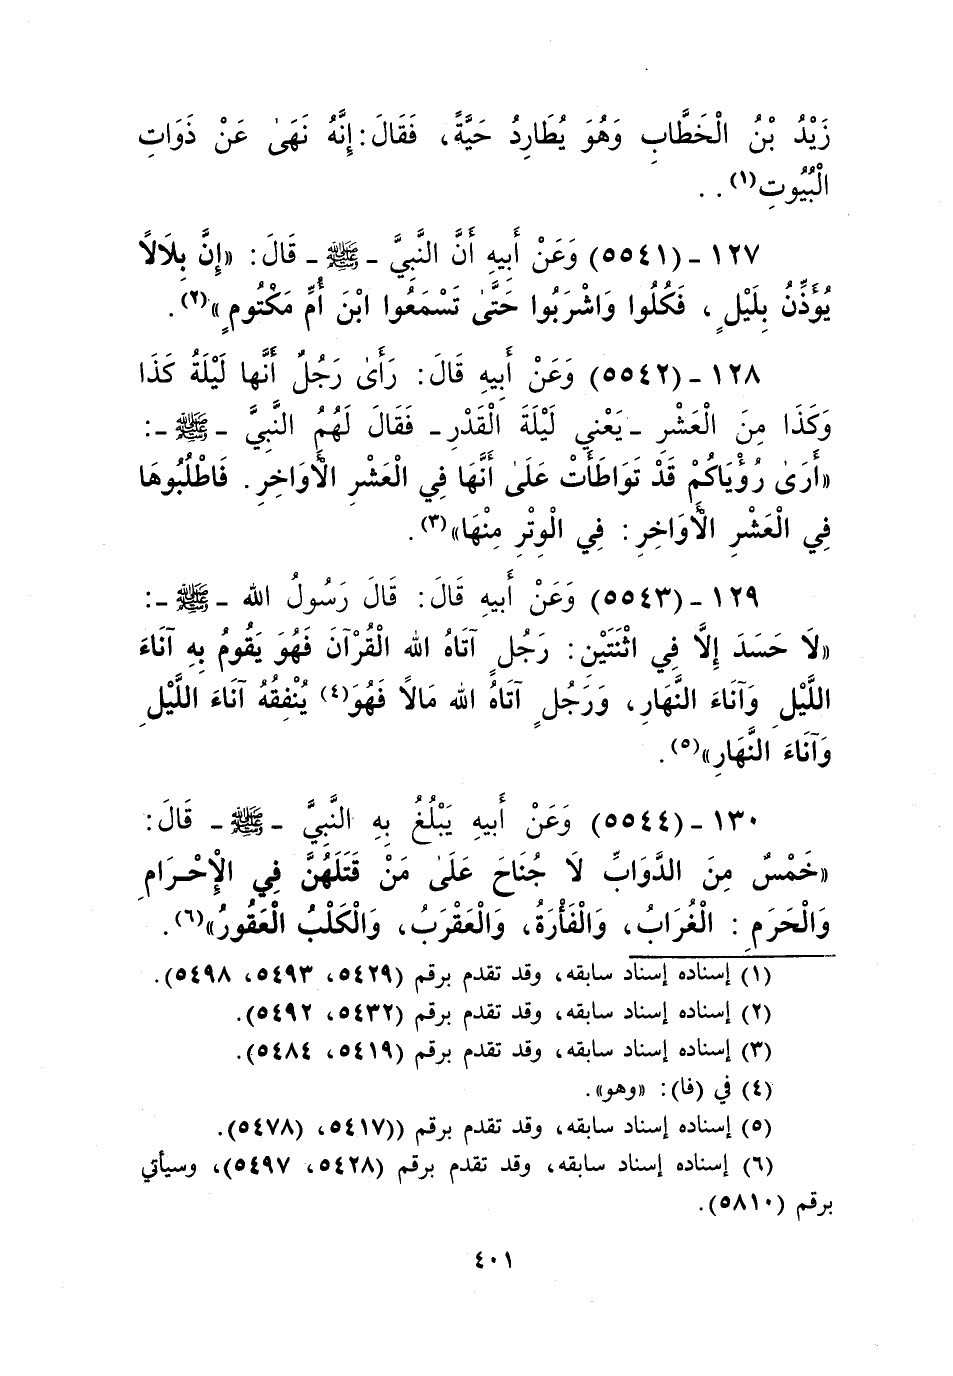 زَيْدُ بْنُ الْخَطَّابِ وَهُوَ يُطَارِدُ حَيَّةً، فَقَالَ: إِنَّهُ نَهَىٰ عَنْ ذَوَاتِ
الْبُيُوتِ(١). .
١٢٧ - (٥٥٤١) وَعَنْ أَبِيهِ أَنَّ النَّبِيَّ - ﷺ - قَالَ: «إِنَّ بِلَالاً
يُؤَذِّنُ بِلَيْلٍ، فَكُلُوا وَاشْرَبُوا حَتَّىٰ تَسْمَعُوا ابْنَ أُمِّ مَكْتُومٍ»(٢).
١٢٨ - (٥٥٤٢) وَعَنْ أَبِيهِ قَالَ: رَأَىٰ رَجُلٌ أَنَّها لَيْلَةُ كَذَا
وَكَذَا مِنَ الْعَشْرِ - يَعْنِي لَيْلَةَ الْقَدْرِ - فَقَالَ لَهُمُ النَّبِيَّ - ﷺ -:
«أَرَىٰ رُؤْيَاكُمْ قَدْ تَوَاطَأَتْ عَلَىٰ أَنَّهَا فِي الْعَشْرِ الْأَوَاخِرِ. فَاطْلُبُوهَا
فِي الْعَشْرِ الْأَوَاخِرِ: فِي الْوِتْرِ مِنْهَا»(٣).
١٢٩ - (٥٥٤٣) وَعَنْ أَبِيهِ قَالَ: قَالَ رَسُولُ الله - ﷺ -:
«لَا حَسَدَ إِلَّا فِي اثْنَتَيْنِ: رَجُلٍ آتَاهُ الله الْقُرْآنَ فَهُوَ يَقُومُ بِهِ آنَاءَ
اللَّيْلِ وَآنَاءَ النَّهَارِ، وَرَجُلٍ آتَاهُ الله مَالاً فَهُوَ(٤) يُنْفِقُهُ آنَاءَ اللَّيْلِ
وَآنَاءَ النَّهَارِ»(٥).
١٣٠ - (٥٥٤٤) وَعَنْ أَبِيهِ يَبْلُغُ بِهِ النَّبِيَّ - ﷺ - قَالَ:
«خَمْسٌ مِنَ الدَّوَابِّ لَا جُنَاحَ عَلَىٰ مَنْ قَتَلَهُنَّ فِي الْإِحْـرَامِ
وَالْحَرَمِ: الْغُرَابُ، وَالْفَأْرَةُ، وَالْعَقْرَبُ، وَالْكَلْبُ الْعَقُورُ»(٦).
(١) إسناده إسناد سابقه، وقد تقدم برقم (٥٤٢٩، ٥٤٩٣، ٥٤٩٨).
(٢) إسناده إسناد سابقه، وقد تقدم برقم (٥٤٣٢، ٥٤٩٢).
(٣) إسناده إسناد سابقه، وقد تقدم برقم (٥٤١٩، ٥٤٨٤).
(٤) في (فا): «وهو».
(٥) إسناده إسناد سابقه، وقد تقدم برقم ((٥٤١٧، (٥٤٧٨).
(٦) إسناده إسناد سابقه، وقد تقدم برقم (٥٤٢٨، ٥٤٩٧)، وسيأتي
برقم (٥٨١٠).
٤٠١